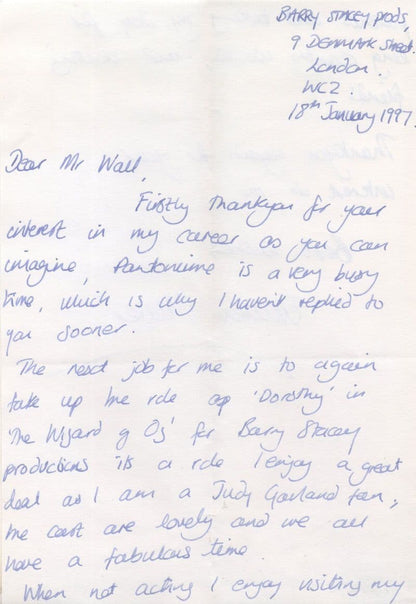 BARRY STACEY PRODS,
9 DENMARK Street.
London.
WC2.
18th January 1997.
Dear Mr Wall,
Firstly Thankyou for your
interest in my career as you can
imagine, Pantomime is a very busy
time, which is why I haven't replied to
you sooner.
The next job for me is to again
take up the role of 'Dorothy' in
'The Wizard of Oz' for Barry Stacey
productions its a role I enjoy a great
deal as I am a Judy Garland fan,
the cast are lovely and we all
have a fabulous time.
When not acting I enjoy visiting my